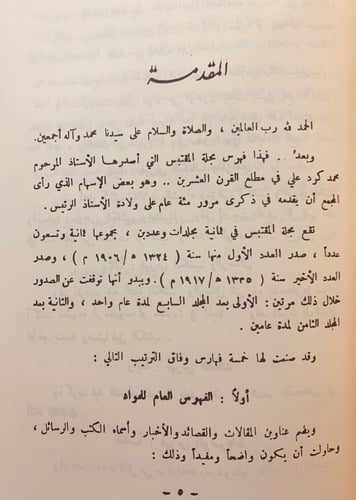 المقدمة
الحمد لله رب العالمين ، والصلاة والسلام على سيدنا محمد وآله أجمعين .
وبعد . . فهذا فهرس مجلة المقتبس التي أصدرها الأستاذ المرحوم
محمد كرد علي في مطلع القرن العشرين .. وهو بعض الإسهام الذي رأى
المجمع أن يقدمه في ذكرى مرور مئة عام على ولادة الأستاذ الرئيس .
تقع مجلة المقتبس في ثمانية مجلدات وعددين ، مجموعها ثمانية وتسعون
عدداً ، صدر العدد الأول منها سنة ( ١٣٢٤ ه / ١٩٠٦ م ) ، وصدر
العدد الأخير سنة ( ١٣٣٥ ه / ١٩١٧ م ) . ويبدو أنها توقفت عن الصدور
خلال ذلك مرتين : الأولى بعد المجلد السابع لمدة عام واحد ، والثانية بعد
المجلد الثامن لمدة عامين .
وقد صنعت لها خمسة فهارس وفاق الترتيب التالي :
أولاً : الفهرس العام للمواد
ويضم عناوين المقالات والقصائد والأخبار وأسماء الكتب والرسائل ،
وحاولت أن يكون واضحاً ومفيداً وذلك :
- ٥ -